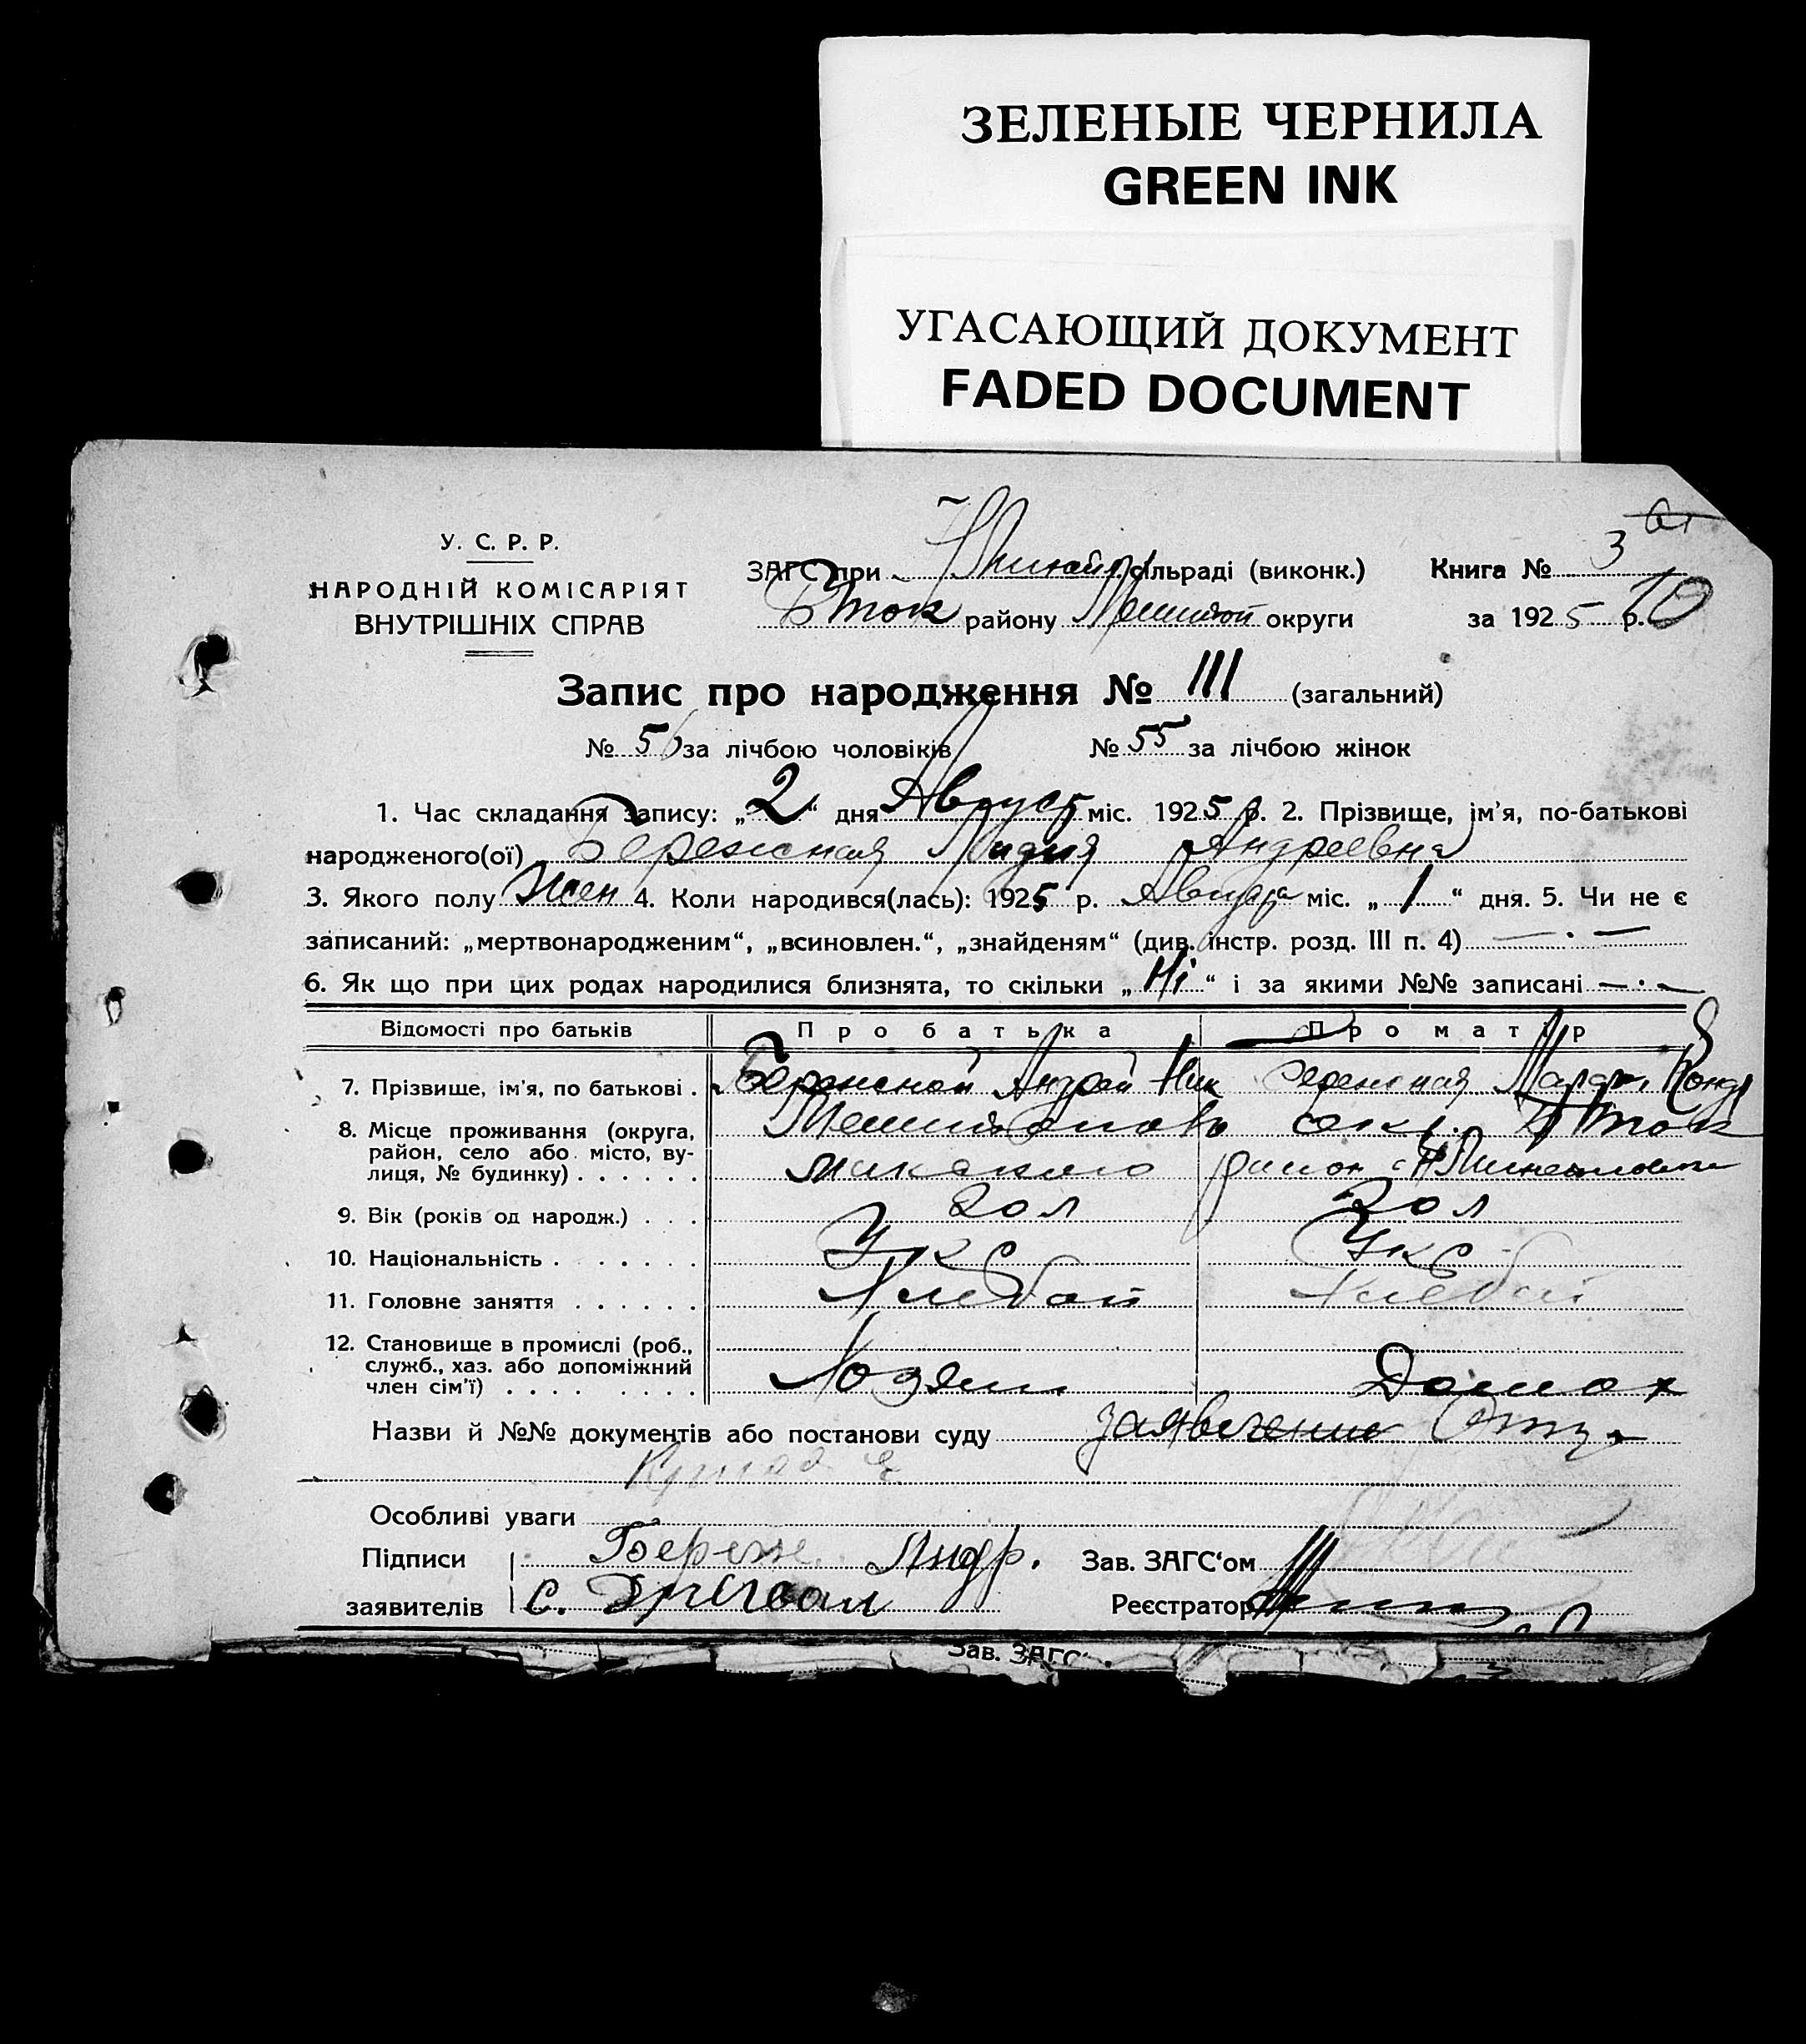 ЗЕЛЕНЫЕ ЧЕРНИЛА
GREEN INK
УГАСАЮЩИЙ ДОКУМЕНТ
FADED DOCUMENT
У. С. Р. Р.
НАРОДНІЙ КОМІСАРІЯТ
ВНУТРІШНІХ СПРАВ
ЗАГС при сільраді (виконк.)
Бток району округи
Книга № 3
за 1925 р.
Запис про народження № 111 (загальний)
№ 56 за лічбою чоловіків № 55 за лічбою жінок
1. Час складання запису: „2“ дня Август міс. 1925 р. 2. Прізвище, ім'я, по-батькові
народженого(ої) Бережная Лидия Андреевна
3. Якого полу Жен 4. Коли народився(лась): 1925 р. Августа міс. „1“ дня. 5. Чи не є
записаний: „мертвонародженим“, „всиновлен.“, „знайденям“ (див. інстр. розд. III п. 4) — . —
6. Як що при цих родах народилися близнята, то скільки „Ні“ і за якими №№ записані — . —
Відомості про батьків Про батька Про матір
7. Прізвище, ім'я, по батькові . Бережной Андрей Ник Бережная Кондр
8. Місце проживання (округа, район, село або місто, вулиця, № будинку) . . . . . . Бток
район с
9. Вік (років од народж.) . . . 20 л 20 л
10. Національність . . . . . . Укр Укр
11. Головне заняття . . . . . . Хлебоп Хлебоп
12. Становище в промислі (роб., служб., хаз. або допоміжний член сім'ї) . . . . . . . . Хозяин Домох
Назви й №№ документів або постанови суду заявление Отца
Особливі уваги
Підписи заявителів Береж Андр.
с.
Зав. ЗАГС'ом
Реєстратор
Зав. ЗАГС'